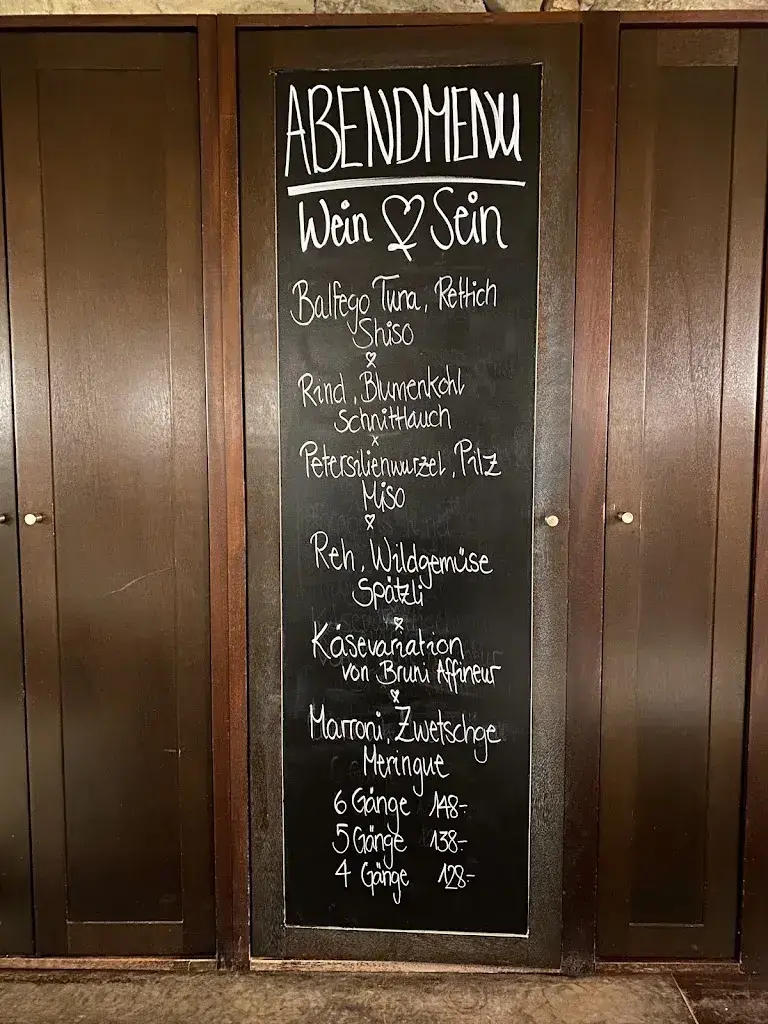 ABENDMENU
Wein & Sein
Balfego Tuna, Rettich
Shiso
Rind, Blumenkohl
Schnittlauch
Petersilienwurzel, Pilz
Miso
Reh, Wildgemüse
Spätzli
Käsevariation
von Bruni Affineur
Marroni, Zwetschge
Meringue
6 Gänge 148.-
5 Gänge 138.-
4 Gänge 128.-